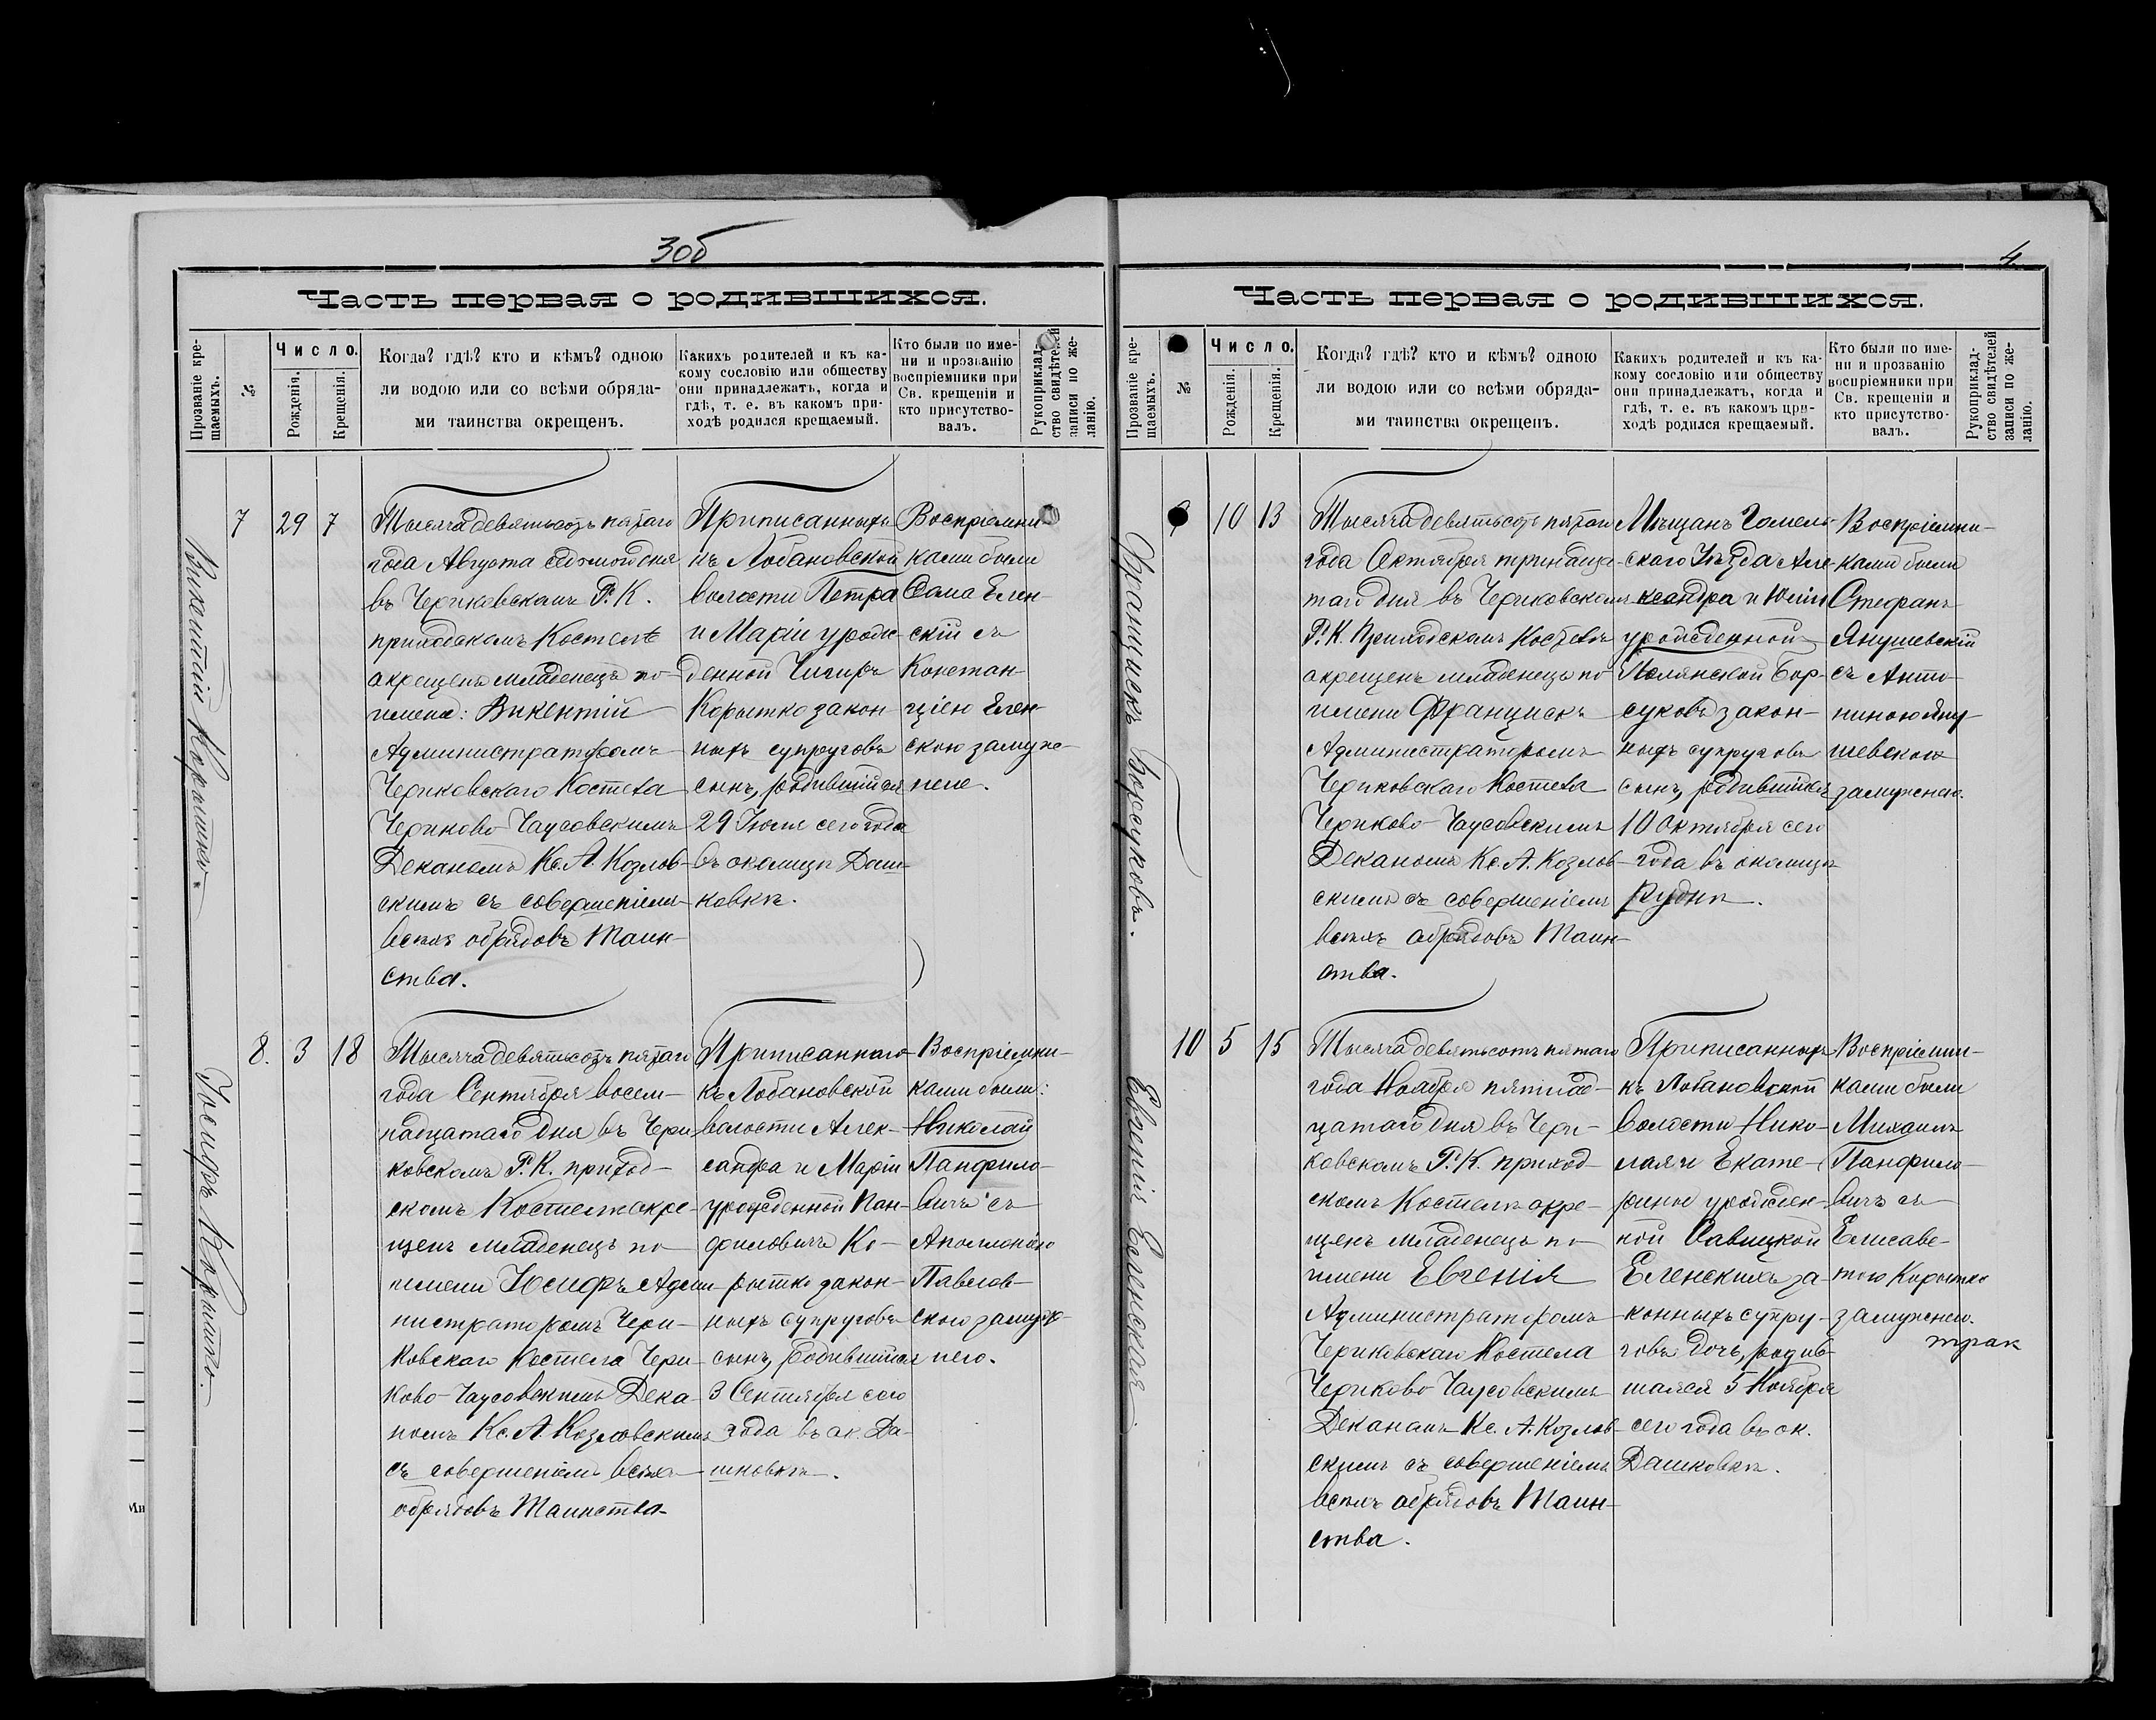 3об
Часть первая о родившихся.
Прозваніе кре-
щаемыхъ.
№
Число.
Рожденія.
Крещенія.
Когда? гдѣ? кто и кѣмъ? одною
ли водою или со всѣми обряда-
ми таинства окрещенъ.
Какихъ родителей и къ ка-
кому сословію или обществу
они принадлежатъ, когда и
гдѣ, т. е. въ какомъ при-
ходѣ родился крещаемый.
Кто были по име-
ни и прозванію
воспріемники при
Св. крещеніи и
кто присутство-
валъ.
Рукоприклад-
ство свидѣтелей
записи по же-
ланію.
Викентій Корытко.
7
29
7
Тысяча девятьсотъ пятаго
года Августа седьмого дня
въ Чериковскомъ Р. К.
приходскомъ Костелѣ
окрещенъ младенецъ по
имени: Викентій
Администраторомъ
Чериковскаго Костела
Чериково-Чаусовскимъ
Деканомъ Кс. А. Козлов-
скимъ съ совершеніемъ
всѣхъ обрядовъ Таин-
ства.
Приписанныхъ
къ Лобановской
волости Петра
и Маріи урож-
денной Чигиръ
Корытко закон-
ныхъ супруговъ
сынъ, родившійся
29 Іюля сего года
въ околицѣ Даш-
ковкѣ.
Воспріемни-
ками были
Сама Елен-
скій съ
Констан-
ціею Елен-
скою замуж-
нею.
Іосифъ Корытко.
8.
3
18
Тысяча девятьсотъ пятаго
года Сентября восем-
надцатаго дня въ Чери-
ковскомъ Р. К. приход-
скомъ Костелѣ окре-
щенъ младенецъ по
имени Іосифъ Адми-
нистраторомъ Чери-
ковскаго Костела Чери-
ково-Чаусовскимъ Дека-
номъ Кс. А. Козловскимъ
съ совершеніемъ всѣхъ
обрядовъ Таинства
Приписаннаго
къ Лобановской
волости Алек-
сандра и Маріи
урожденной Пан-
филовичъ Ко-
рытко закон-
ныхъ супруговъ
сынъ, родившійся
3 Сентября сего
года въ ок. Да-
шковкѣ.
Воспріемни-
ками были:
Николай
Панфило-
вичъ съ
Аполлоніею
Павлов-
скою замуж-
нею.
4.
Часть первая о родившихся.
Прозваніе кре-
щаемыхъ.
№
Число.
Рожденія.
Крещенія.
Когда? гдѣ? кто и кѣмъ? одною
ли водою или со всѣми обряда-
ми таинства окрещенъ.
Какихъ родителей и къ ка-
кому сословію или обществу
они принадлежатъ, когда и
гдѣ, т. е. въ какомъ при-
ходѣ родился крещаемый.
Кто были по име-
ни и прозванію
воспріемники при
Св. крещеніи и
кто присутство-
валъ.
Рукоприклад-
ство свидѣтелей
записи по же-
ланію.
Францискъ Борсуковъ.
10
13
Тысяча девятьсотъ пятаго
года Октября тринадца-
таго дня въ Чериковскомъ
Р. К. Приходскомъ Костелѣ
окрещенъ младенецъ по
имени Францискъ
Администраторомъ
Чериковскаго Костела
Чериково-Чаусовскимъ
Деканомъ Кс. А. Козлов-
скимъ съ совершеніемъ
всѣхъ обрядовъ Таин-
ства.
Мѣщанъ Гомель-
скаго Уѣзда Але-
ксандра и Юліи
урожденной
Полянской Бор-
суковъ закон-
ныхъ супруговъ
сынъ, родившійся
10 Октября сего
года въ околицѣ
Руднѣ.
Воспріемни-
ками были
Стефанъ
Янушевскій
съ Анто-
ниною Яну-
шевскою
замужнею.
Евгенія Еленская.
10
5
15
Тысяча девятьсотъ пятаго
года Ноября пятнад-
цатаго дня въ Чери-
ковскомъ Р. К. приход-
скомъ Костелѣ окре-
щенъ младенецъ по
имени Евгенія
Администраторомъ
Чериковскаго Костела
Чериково-Чаусовскимъ
Деканомъ Кс. А. Козлов-
скимъ съ совершеніемъ
всѣхъ обрядовъ Таин-
ства.
Приписанныхъ
къ Лобановской
волости Нико-
лая и Екате-
рины урожден-
ной Савицкой
Еленскихъ за-
конныхъ супру-
говъ дочь, родив-
шаяся 5 Ноября
сего года въ ок.
Дашковкѣ.
Воспріемни-
ками были
Михаилъ
Панфило-
вичъ съ
Елисаве-
тою Корытко
замужнею.